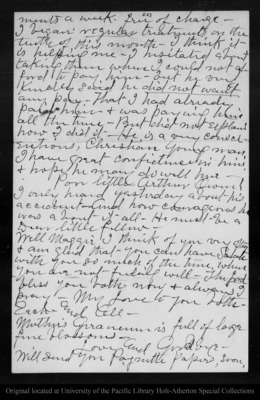 ments a week. free of charge -
I began regular treatments on the
tenth of this month - I think it
is helping me - I hesitated about
taking them when I could not af-
ford to pay him - but he very
kindly said he did not want
any pay. that I had already
paid him - & was paying him
all the time - But did not explain
how I did it - He is a very consci-
entious, Christian young man,
I have great confidence in him
& hope he may do well here -
Poor little Arthur
I only read yesterday about his
accident - and how courageous he
was about it - all - He must be a
Dear little fellow -
Well Maggie I think of you very often
& am glad that you can have
with you so much of the time, when
you are not feeling well - The Lord
bless you both now & always I
pray - My Love to you both -
Each and all -
Mother's Geranium is full of large
fine blossoms -
Love and Good bye -
Will send you papers, soon,
Original located at University of the Pacific Library Holt-Atherton Special Collections